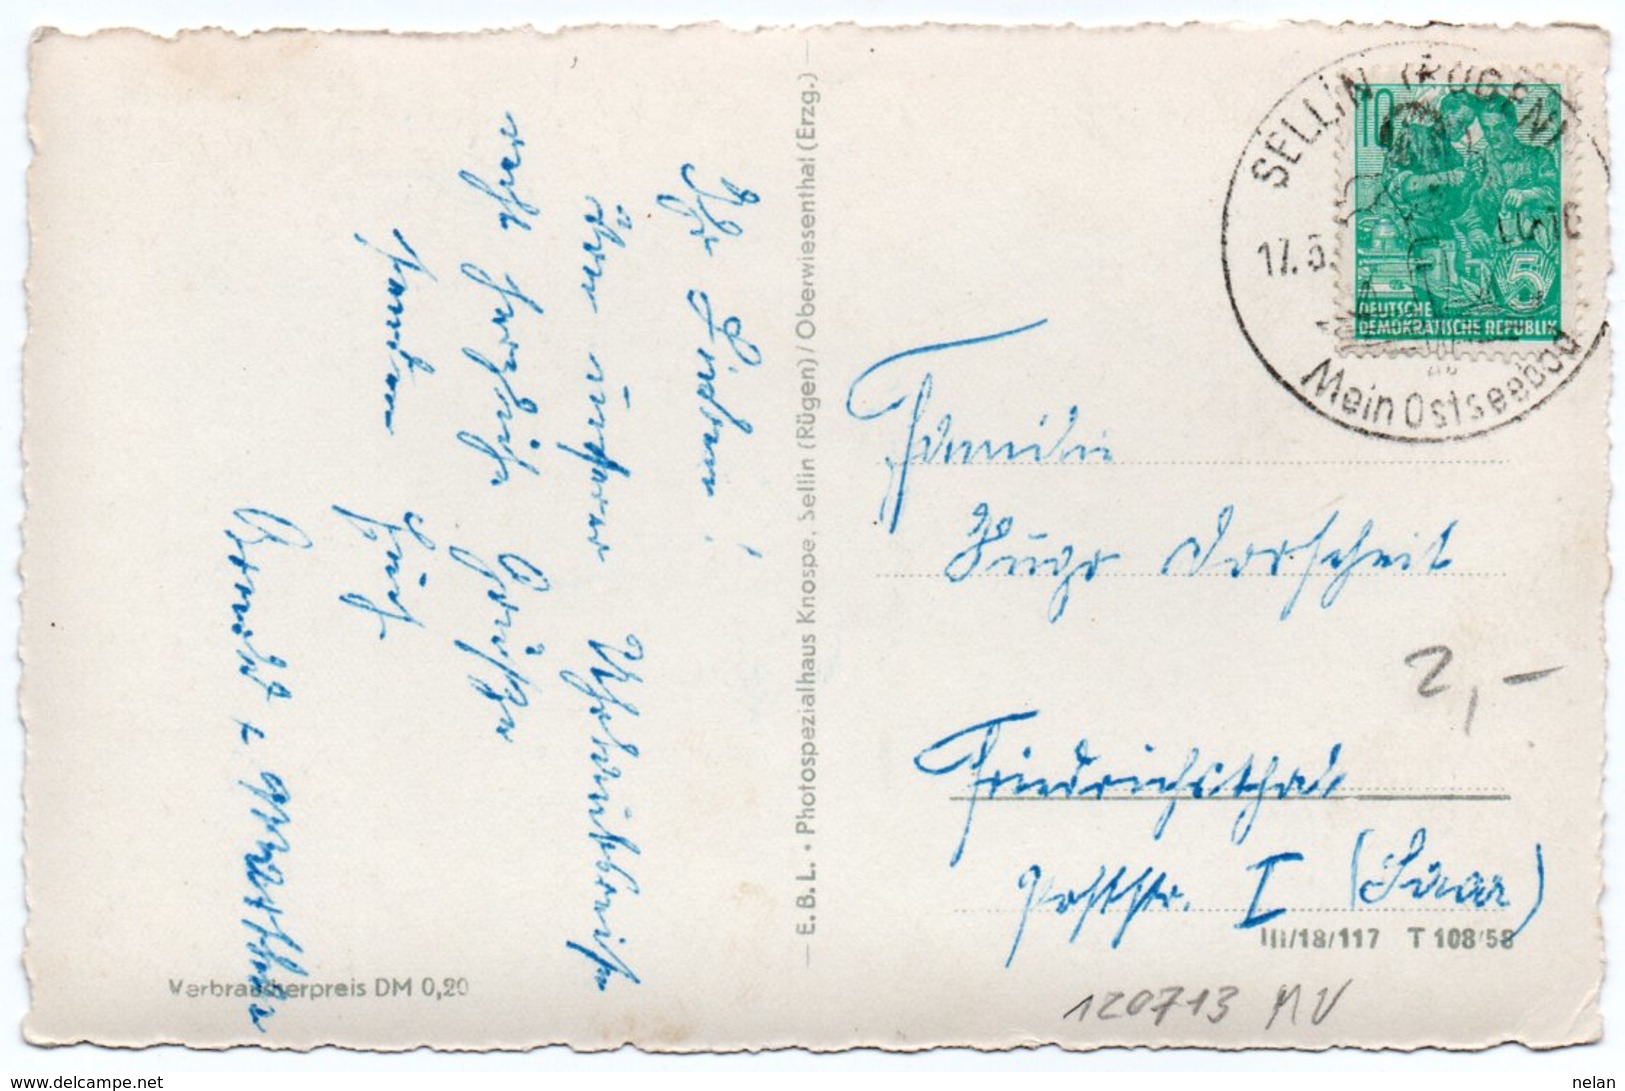 Ihr Lieben!
Von unserer Urlaubsreise
recht herzliche Grüße
senden Euch
E. B. L. • Photospezialhaus Knospe, Sellin (Rügen) / Oberwiesenthal (Erzg.)
Verbraucherpreis DM 0,20
SELLIN (RÜGEN)
17.
Mein Ostseebad
10
5
DEUTSCHE
DEMOKRATISCHE REPUBLIK
Familie
Hugo Dorscheit
2,-
Friedrichsthal
Poststr. I (Saar)
III/18/117 T 108/58
120713 MV
www.delcampe.net
nelan